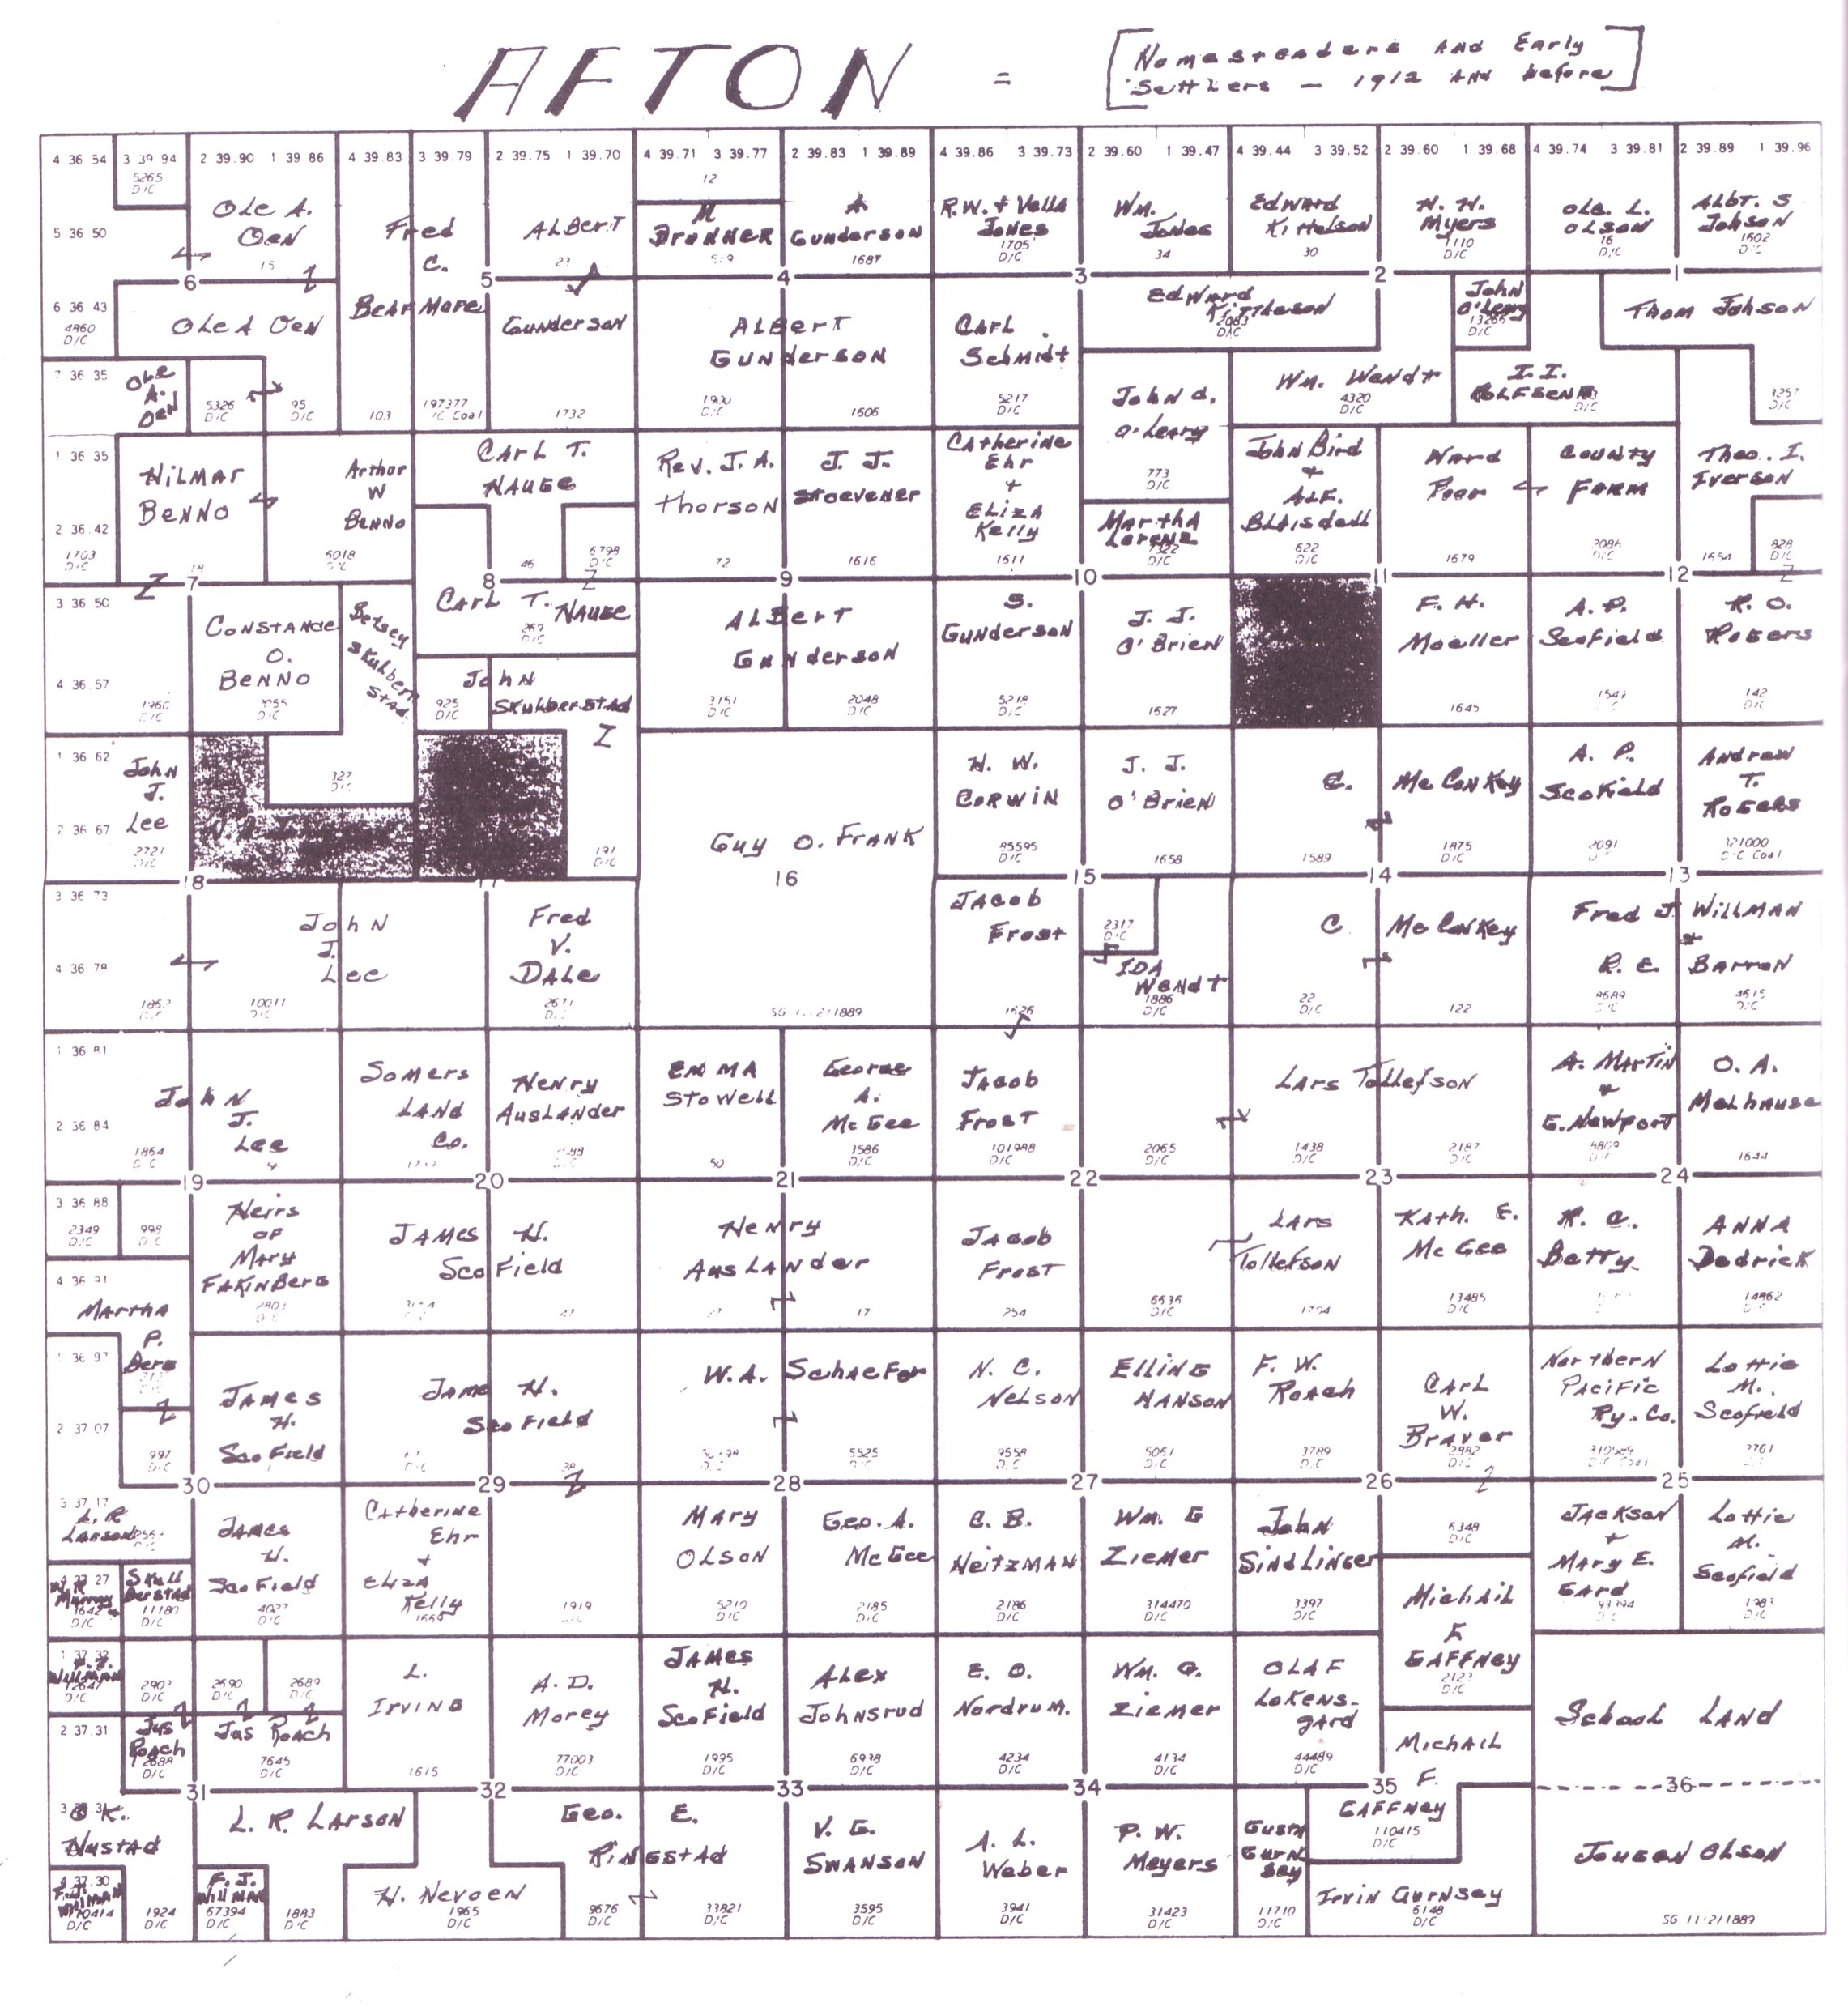 AFTON = [Homesteaders and Early
Settlers — 1912 and before]
4 36 54
3 39 94
2 39.90 1 39 86
4 39 83
3 39.79
2 39.75 1 39.70
4 39.71 3 39.77
2 39.83 1 39.89
4 39.86 3 39.73
2 39.60 1 39.47
4 39.44 3 39.52
2 39.60 1 39.68
4 39.74 3 39.81
2 39.89 1 39.96
5265
D/C
12
5 36 50
Ole A.
Oen
15
Fred
C.
Bearmore
103
197377
D/C Coal
Albert
23
Gunderson
1732
M
Brunner
A.
Gunderson
1687
R.W. + Vella
Jones
1705
D/C
Wm.
Jones
34
Edward
Kittelson
30
H. H.
Myers
1110
D/C
Ole. L.
Olson
16
D/C
Albt. S
Johson
1602
D/C
6
5
4
3
2
1
6 36 43
4860
D/C
Ole A Oen
7 36 35
Ole
A.
Oen
5326
D/C
95
D/C
Albert
Gunderson
1900
D/C
1606
Carl
Schmidt
5217
D/C
Edward
Kittleson
2083
D/C
John
O'Leary
13265
D/C
Thom Johson
John O.
O'Leary
773
D/C
Wm. Wendt
4320
D/C
I. I.
Rolfsen
3257
D/C
1 36 35
2 36.42
1703
D/C
Hilmar
Benno
Arthur
W
Benno
5018
D/C
Carl T.
Nauge
46
6798
D/C
Rev. J. A.
Thorson
72
J. J.
Stoevener
1616
Catherine
Ehr
+
Eliza
Kelly
1611
Martha
Lorenz
D/C
John Bird
+
Alf.
Blaisdell
622
D/C
Ward County
Poor Farm
1679
2086
D/C
Theo. I.
Iverson
1654
828
D/C
7
8
9
10
11
12
3 36 50
4 36.57
1960
D/C
Constance
O.
Benno
D/C
Betsey
Skulberstad
Carl T. Nauge
269
D/C
John
Skulberstad
925
D/C
Albert
Gunderson
3151
D/C
2048
D/C
S.
Gunderson
5218
D/C
J. J.
O'Brien
1627
F. H.
Moeller
1645
A. P.
Scofield
D/C
R. O.
Rogers
142
D/C
1 36 62
2 36 67
John
J.
Lee
2721
D/C
327
D/C
191
D/C
Guy O. Frank
SG 11/2/1889
H. W.
Corwin
95595
D/C
J. J.
O'Brien
1658
C. McConkey
1589
1875
D/C
A. P.
Scofield
2091
D/C
Andrew
T.
Rogers
321000
D/C Coal
18
17
16
15
14
13
3 36 73
4 36 78
D/C
John
J.
Lee
10011
D/C
Fred
V.
Dale
2671
D/C
Jacob
Frost
1626
2317
D/C
Ida
Wendt
1886
D/C
C. McConkey
22
D/C
122
Fred J. Willman
+
R. E. Barron
8689
D/C
4615
D/C
1 36 81
2 36 84
John
J.
Lee
1864
Somers
Land
Co.
Henry
Auslander
D/C
Emma
Stowell
50
George
A.
McGee
3586
D/C
Jacob
Frost
101988
D/C
2065
D/C
Lars Tollefson
1438
D/C
2187
D/C
A. Martin
+
G. Newport
O. A.
Melhause
1644
19
20
21
22
23
24
3 36 88
2349
D/C
998
D/C
4 36 91
Heirs
of
Mary
Fakinberg
James H.
Scofield
Henry
Auslander
17
Jacob
Frost
254
6536
D/C
Lars
Tollefson
Kath. E.
McGee
13485
D/C
R. C.
Batty
Anna
Dedrick
14862
D/C
Martha
P.
Berg
1 36 97
2 37 07
997
D/C
James
H.
Scofield
James H.
Scofield
28
W.A. Schaefer
5525
D/C
N. C.
Nelson
9558
D/C
Elling
Hanson
5051
D/C
F. W.
Roach
3789
D/C
Carl
W.
Braver
2882
D/C
Northern
Pacific
Ry. Co.
Lottie
M.
Scofield
3761
D/C
30
29
28
27
26
25
3 37.17
L. R.
Larson
James
H.
Scofield
4027
D/C
Catherine
Ehr
+
Eliza
Kelly
1919
D/C
Mary
Olson
5210
D/C
Geo. A.
McGee
2185
D/C
C. B.
Heitzman
2186
D/C
Wm. G
Ziemer
314470
D/C
John
Sindlinger
3397
D/C
6348
D/C
Jackson
+
Mary E.
Gard
D/C
Lottie
M.
Scofield
D/C
4 37 27
W. R.
Murray
D/C
Skull
berstad
11180
D/C
Michail
F.
Gaffney
D/C
1 37 32
F. J.
Willman
D/C
D/C
2690
D/C
2689
D/C
L.
Irving
1615
A. D.
Morey
77003
D/C
James
H.
Scofield
1995
D/C
Alex
Johnsrud
6938
D/C
E. O.
Nordrum.
4234
D/C
Wm. G.
Ziemer
4134
D/C
Olaf
Lokens-
gard
44489
D/C
School Land
2 37.31
Jas
Roach
D/C
Jas Roach
7645
D/C
31
32
33
34
35
36
Michail
F.
Gaffney
110415
D/C
O K.
Nustad
L. R. Larson
Geo. E.
Ringstad
9676
D/C
33821
D/C
V. G.
Swanson
3595
D/C
A. L.
Weber
3941
D/C
P. W.
Meyers
31423
D/C
Gusta
Gurn
sey
11710
D/C
Irvin Gurnsey
6148
D/C
Jougen Olson
SG 11/2/1889
4 37.30
F. J.
Willman
D/C
1924
D/C
F. J.
Willman
67394
D/C
1883
D/C
H. Nevoen
1965
D/C